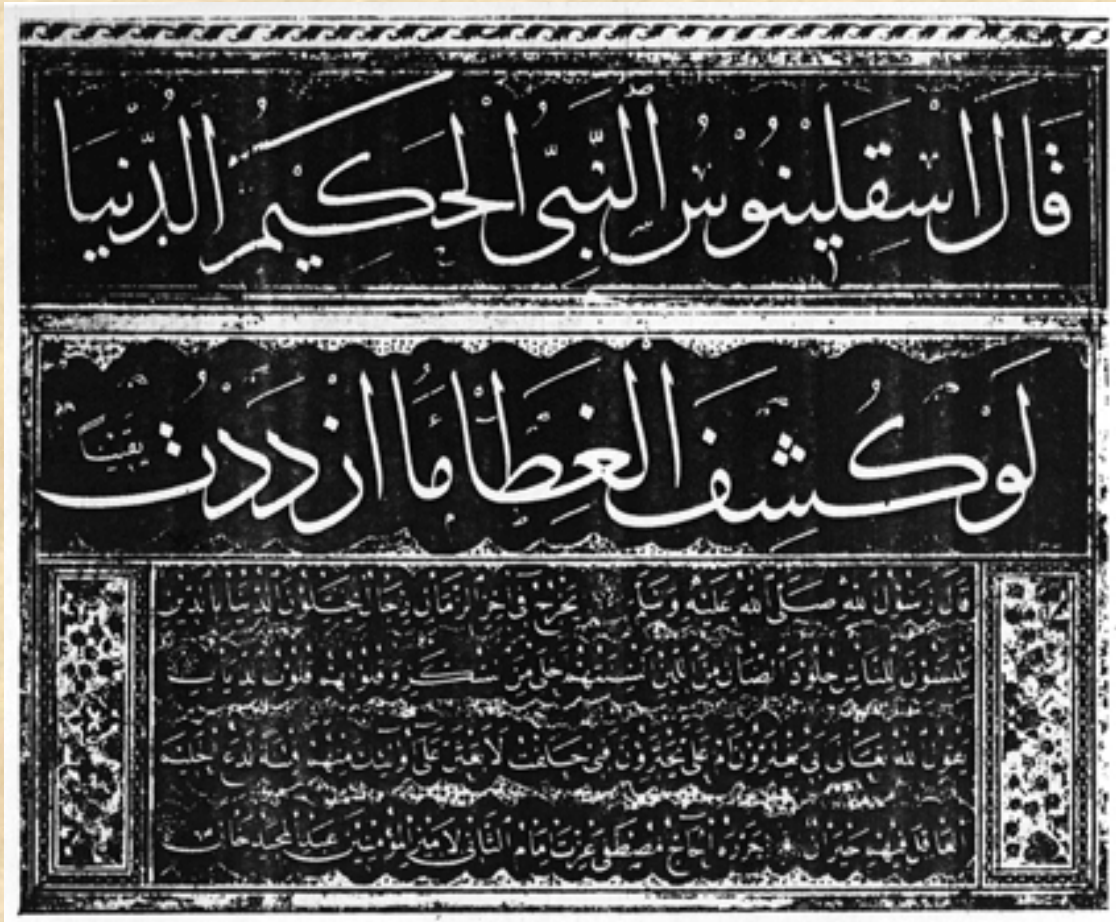 قَالَ اسْقَلِينُوسُ النَّبِىُّ الْحَكِيمُ الدُّنْيَا
لَوْ كُشِفَ الْغِطَاءُ مَا ازْدَدْتُ يَقِينًا
قال رسول الله صلى الله عليه وسلم يخرج فى اخر الزمان رجال يختلون الدنيا بالدين
يلبسون للناس جلود الضان من اللين السنتهم احلى من السكر وقلوبهم قلوب الذياب
يقول الله تعالى ابى يغترون ام على يجترون فبى حلفت لابعثن على اوليك منهم فتنة تدع الحليم
العاقل فيهم حيران حرره الحاج مصطفى عزت امام الثانى لامير المؤمنين عبد المجيد خان